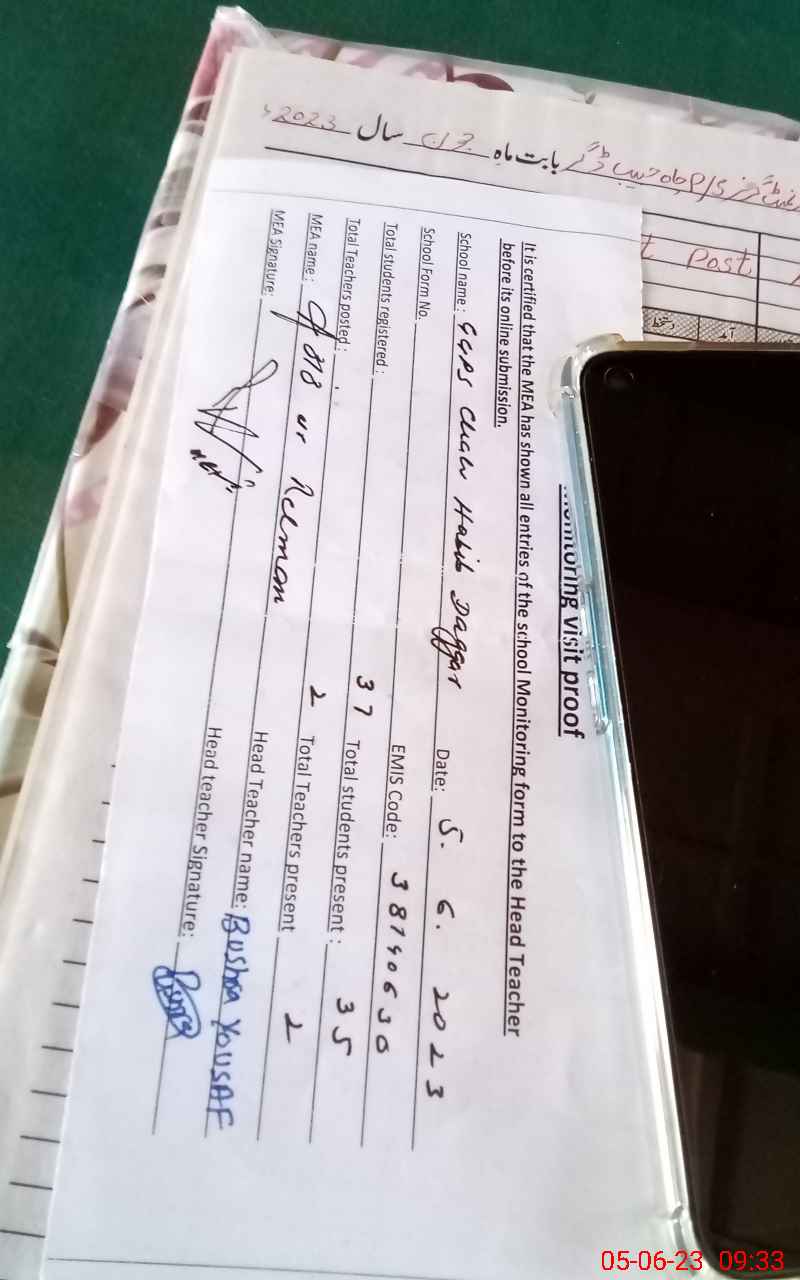 2023ء سال جون بابت ماہ
Post
دستخط
آمد
Monitoring visit proof
It is certified that the MEA has shown all entries of the school Monitoring form to the Head Teacher
before its online submission.
School name: GGPS Chah Habib Daggar Date: 5. 6. 2023
School Form No. EMIS Code: 38740630
Total students registered: 37 Total students present: 35
Total Teachers posted: 2 Total Teachers present 2
MEA name: ur Rehman Head Teacher name: Bushra YOUSAF
MEA Signature: Head teacher Signature:
05-06-23 09:33